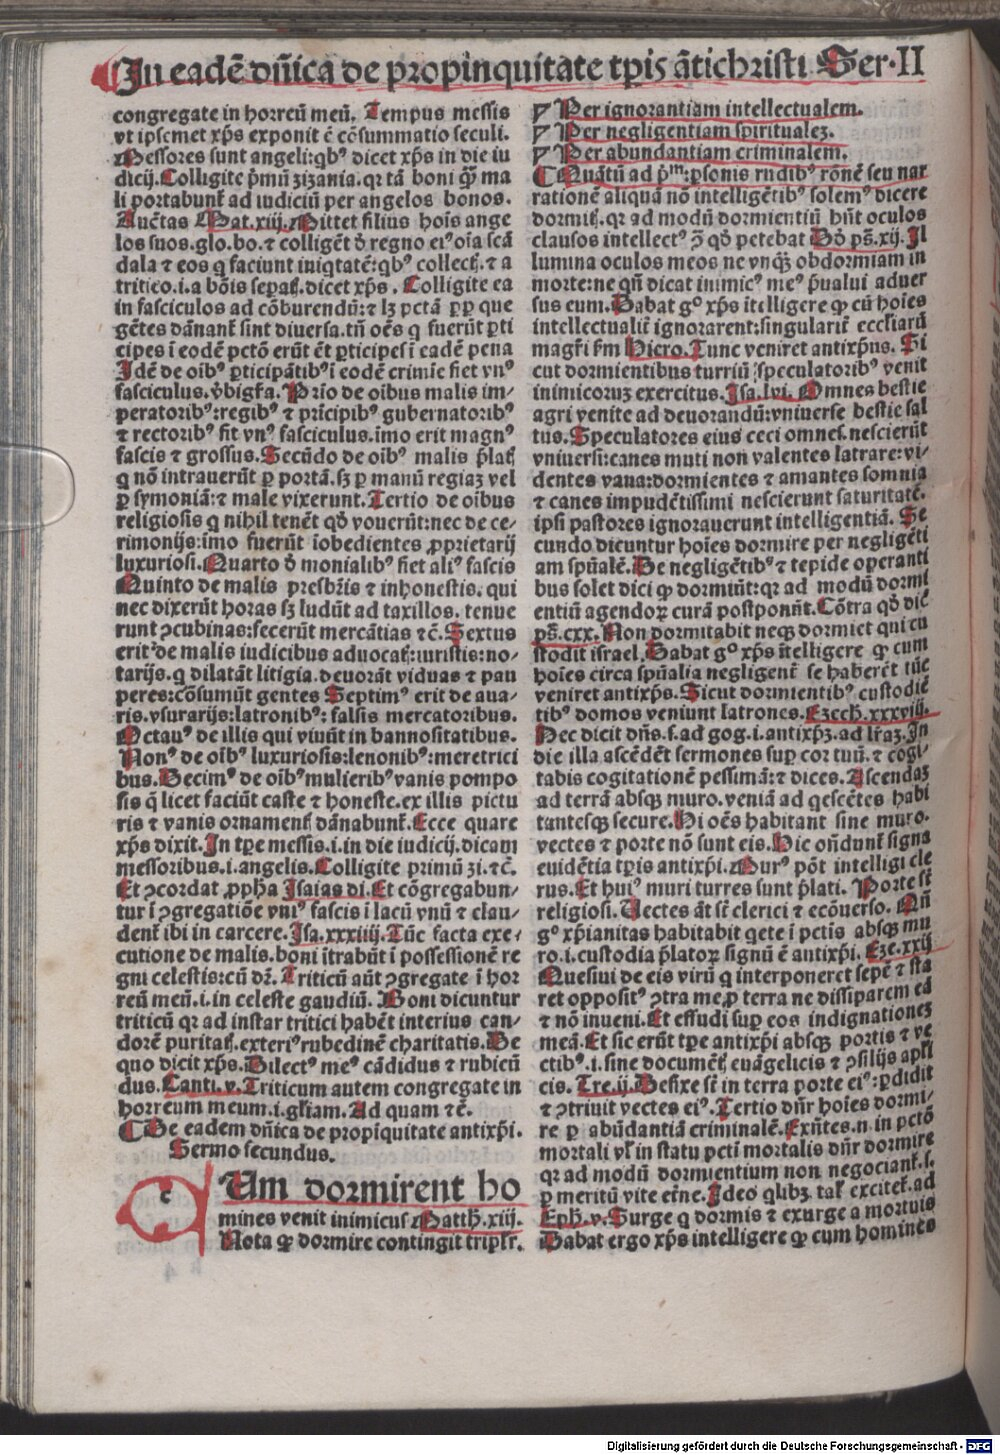 In eadē dñica de propinquitate tp̄is ātichristi Ser. II
congregate in horreū meū. Tempus messis
vt ipsemet xp̄s exponit ē cōsummatio seculi.
Messores sunt angeli: qbꝰ dicet xp̄s in die iu
dicij. Colligite p̄mū zizania. qr tā boni q̄ꝫ ma
li portabunt̄ ad iudiciū per angelos bonos.
Auc̄tas Mat. xiij. Mittet filius hoīs ange
los suos. glo. bo. ⁊ colligēt d̄ regno eiꝰ oīa scā
dala ⁊ eos q faciunt iniqtatē: qbꝰ collect̄. ⁊ a
tritico. i. a bōis sep̄at̄. dicet xp̄s. Colligite ea
in fasciculos ad cōburendū: ⁊ lꝫ pctā ꝓp que
gētes dānant̄ sint diuersa. tn̄ oēs q fuerūt ꝑti
cipes ī eodē pctō erūt ēt ꝑticipes ī eadē pena
Idē de oībꝰ ꝑticipātibꝰ ī eodē crimīe fiet vnꝰ
fasciculus. v̄bigr̄a. Prīo de oibus malis im-
peratoribꝰ: regibꝰ ⁊ prīcipibꝰ gubernatoribꝰ
⁊ rectoribꝰ fit vnꝰ fasciculus. imo erit magnꝰ
fascis ⁊ grossus. Secūdo de oībꝰ malis p̄lat̄
q nō intrauerūt ꝑ portā. sꝫ ꝑ manū regiaꝫ vel
ꝑ symoniā: ⁊ male vixerunt. Tertio de oibus
religiosis q nihil tenēt qd̄ vouerūt: nec de ce-
rimonijs: imo fuerūt īobedientes ꝓprietarij
luxuriosi. Quarto d̄ monialibꝰ fiet aliꝰ fascis
Quinto de malis presbr̄is ⁊ inhonestis. qui
nec dixerūt horas sꝫ ludūt ad taxillos. tenue
runt ꝯcubinas: fecerūt mercātias ⁊c̄. Sextus
erit de malis iudicibus aduocat̄: iuristis: no-
tarijs. q dilatāt litigia. deuorāt viduas ⁊ pau
peres: cōsumūt gentes Septimꝰ erit de aua-
ris. vsurarijs: latronibꝰ: falsis mercatoribus.
Octauꝰ de illis qui viuūt in bannositatibus.
Nonꝰ de oībꝰ luxuriosis: lenonibꝰ: meretrici
bus. Decimꝰ de oībꝰ mulieribꝰ vanis pompo
sis q̄ licet faciūt caste ⁊ honeste. ex illis pictu
ris ⁊ vanis ornament̄ dānabunt̄. Ecce quare
xp̄s dixit. In tp̄e messis. i. in die iudicij. dicam
messoribus. i. angelis. Colligite primū zi. ⁊c̄.
Et ꝯcordat ꝓpha Isaias di. Et cōgregabun-
tur ī ꝯgregatiōe vniꝰ fascis ī lacū vnū ⁊ clau-
dent̄ ibi in carcere. Isa. xxxiiij. Tūc facta exe-
cutione de malis. boni ītrabūt ī possessionē re
gni celestis: cū dr̄. Triticū aūt ꝯgregate ī hor
reū meū. i. in celeste gaudiū. Boni dicuntur
triticū qr ad instar tritici habēt interius can-
dorē puritat̄. exteriꝰ rubedinē charitatis. De
quo dicit xp̄s. Dilectꝰ meꝰ cādidus ⁊ rubicū
dus. Canti. v. Triticum autem congregate in
horreum meum. i. gl̄iam. Ad quam ⁊c̄.
De eadem dñica de propiquitate antixp̄i.
Sermo secundus.
c
QUm dormirent ho
mines venit inimicus Matth. xiij.
Nota ꝙ dormire contingit triplr̄.
Per ignorantiam intellectualem.
Per negligentiam spiritualeꝫ.
Per abundantiam criminalem.
Quātū ad p̄m: ꝑsonis rudibꝰ rōnē seu nar
rationē aliquā nō intelligētibꝰ solemꝰ dicere
dormit̄. qr ad modū dormientiū hn̄t oculos
clausos intellectꝰ ꝓ qd̄ petebat Dd̄ ps̄. xij. Il
lumina oculos meos ne vnq̄ꝫ obdormiam in
morte: ne qn̄ dicat inimicꝰ meꝰ p̄ualui aduer
sus eum. Dabat gͦ xp̄s ītelligere ꝙ cū hoīes
intellectualit̄ ignorarent: singularit̄ eccl̄iarū
magr̄i ẜm Hiero. Tunc veniret antixp̄us. Si
cut dormientibus turriū speculatoribꝰ venit
inimicoruꝫ exercitus. Isa. lvi. Omnes bestie
agri venite ad deuorandū: vniuerse bestie sal
tus. Speculatores eius ceci omnes. nescierūt
vniuersi: canes muti non valentes latrare: vi-
dentes vana: dormientes ⁊ amantes somnia
⁊ canes impudētissimi nescierunt saturitatē.
ipsi pastores ignorauerunt intelligentiā. Se
cundo dicuntur hoīes dormire per negligēti
am spūalē. De negligētibꝰ ⁊ tepide operanti
bus solet dici ꝙ dormiūt: qr ad modū dormi
entiū agendoꝝ curā postponūt. Cōtra qd̄ dic̄
ps̄. cxx. Non dormitabit neqꝫ dormiet qui cu
stodit israel. Dabat gͦ xp̄s ītelligere ꝙ cum
hoīes circa spūalia negligent̄ se haberēt tūc
veniret antixp̄s. Sicut dormientibꝰ custodiē
tibꝰ domos veniunt latrones. Ezech. xxxviij.
Hec dicit dn̄s. s. ad gog. i. antixp̄ꝫ. ad lr̄aꝫ. In
die illa ascēdēt sermones sup̄ cor tuū. ⁊ cogi-
tabis cogitationē pessimā: ⁊ dices. Ascendaꝫ
ad terrā absqꝫ muro. veniā ad qescētes habi
tantesqꝫ secure. Hi oēs habitant sine muro.
vectes ⁊ porte nō sunt eis. Hic on̄dunt̄ signa
euidētia tp̄is antixp̄i. Murꝰ pōt intelligi cle
rus. Et huiꝰ muri turres sunt p̄lati. Porte st̄
religiosi. Uectes āt st̄ clerici ⁊ ecōuerso. Qn̄
gͦ xp̄ianitas habitabit qete ī pctīs absqꝫ mu
ro. i. custodia p̄latoꝝ signū ē antixp̄i. Eze. xxij
Quesiui de eis virū q interponeret sepē ⁊ sta
ret oppositꝰ ꝯtra me ꝓ terra ne dissiparem eā
⁊ nō inueni. Et effudi sup̄ eos indignationeꝫ
meā. Et sic erūt tp̄e antixp̄i absqꝫ portis ⁊ ve
ctibꝰ. i. sine document̄ euāgelicis ⁊ ꝯsilijs apl̄i
cis. Tre. ij. Defixe st̄ in terra porte eiꝰ: ꝑdidit
⁊ ꝯtriuit vectes eiꝰ. Tertio dn̄r hoīes dormi-
re ꝑ abūdantiā criminalē. Exn̄tes. n. in pctō
mortali vl̄ in statu pctī mortalis dn̄r dormire
qr ad modū dormientium non negociant̄. s.
ꝑ meritū vite et̄ne. Ideo qlibꝫ tal̄ excitet̄. ad
Eph. v. Surge q dormis ⁊ exurge a mortuis
Dabat ergo xp̄s intelligere ꝙ cum homines
Digitalisierung gefördert durch die Deutsche Forschungsgemeinschaft - DFG